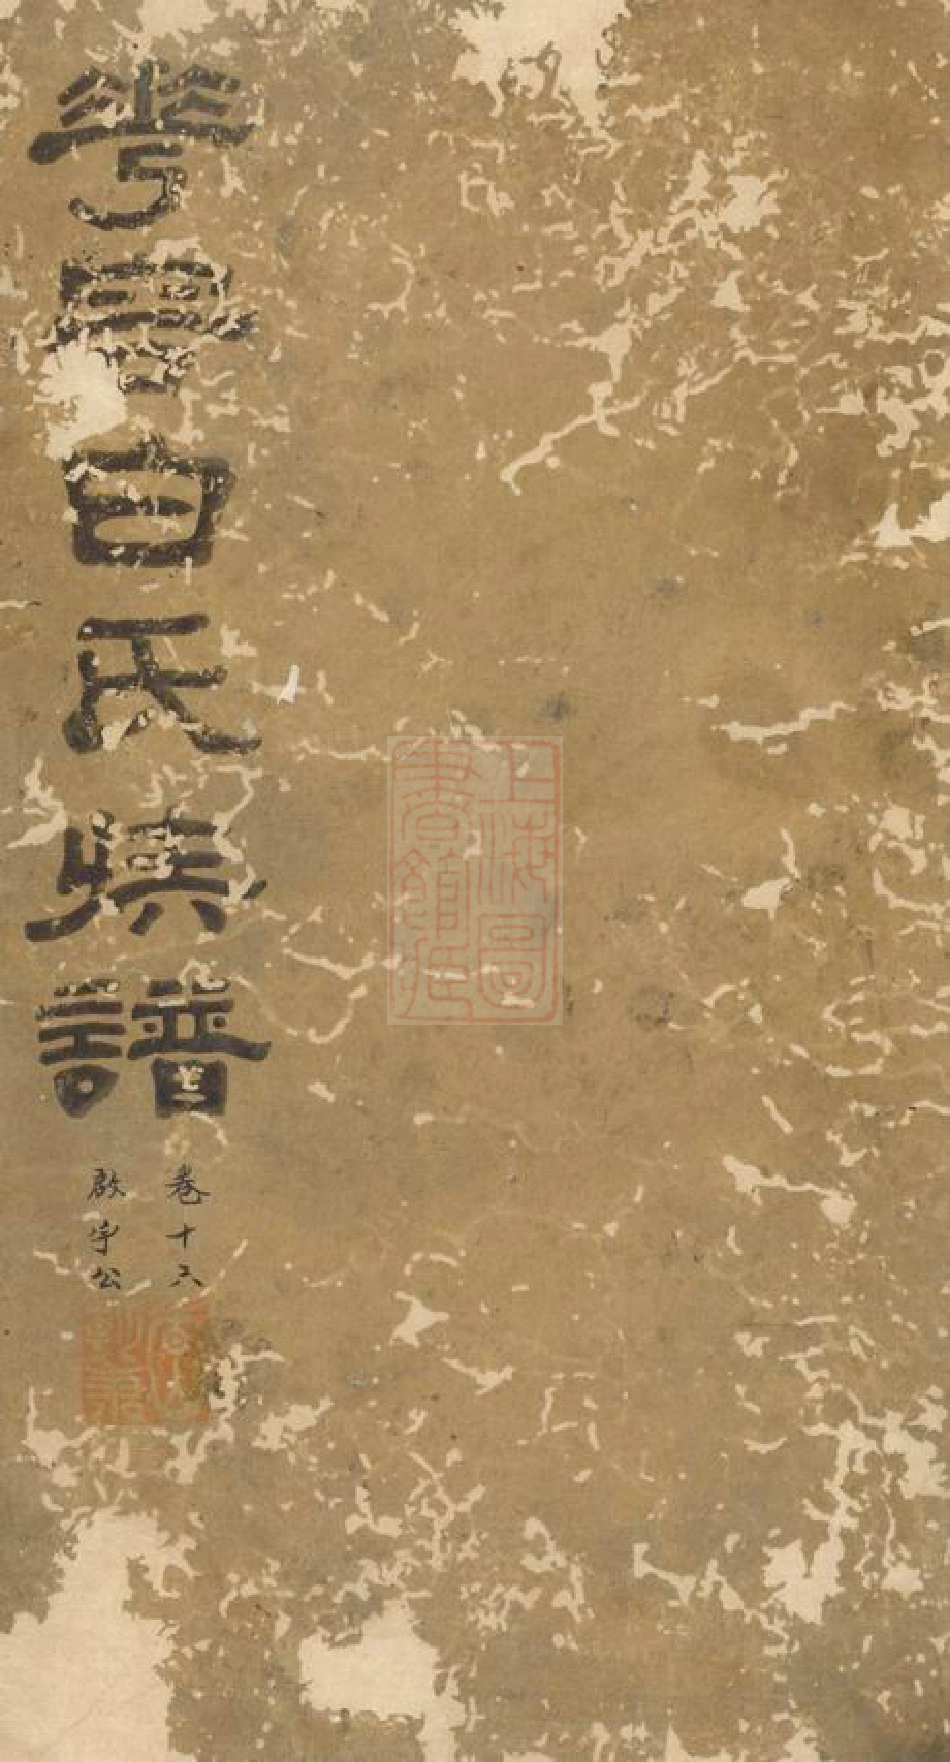 華 白氏族譜
卷十六
啟宇公
上海圖
書館藏